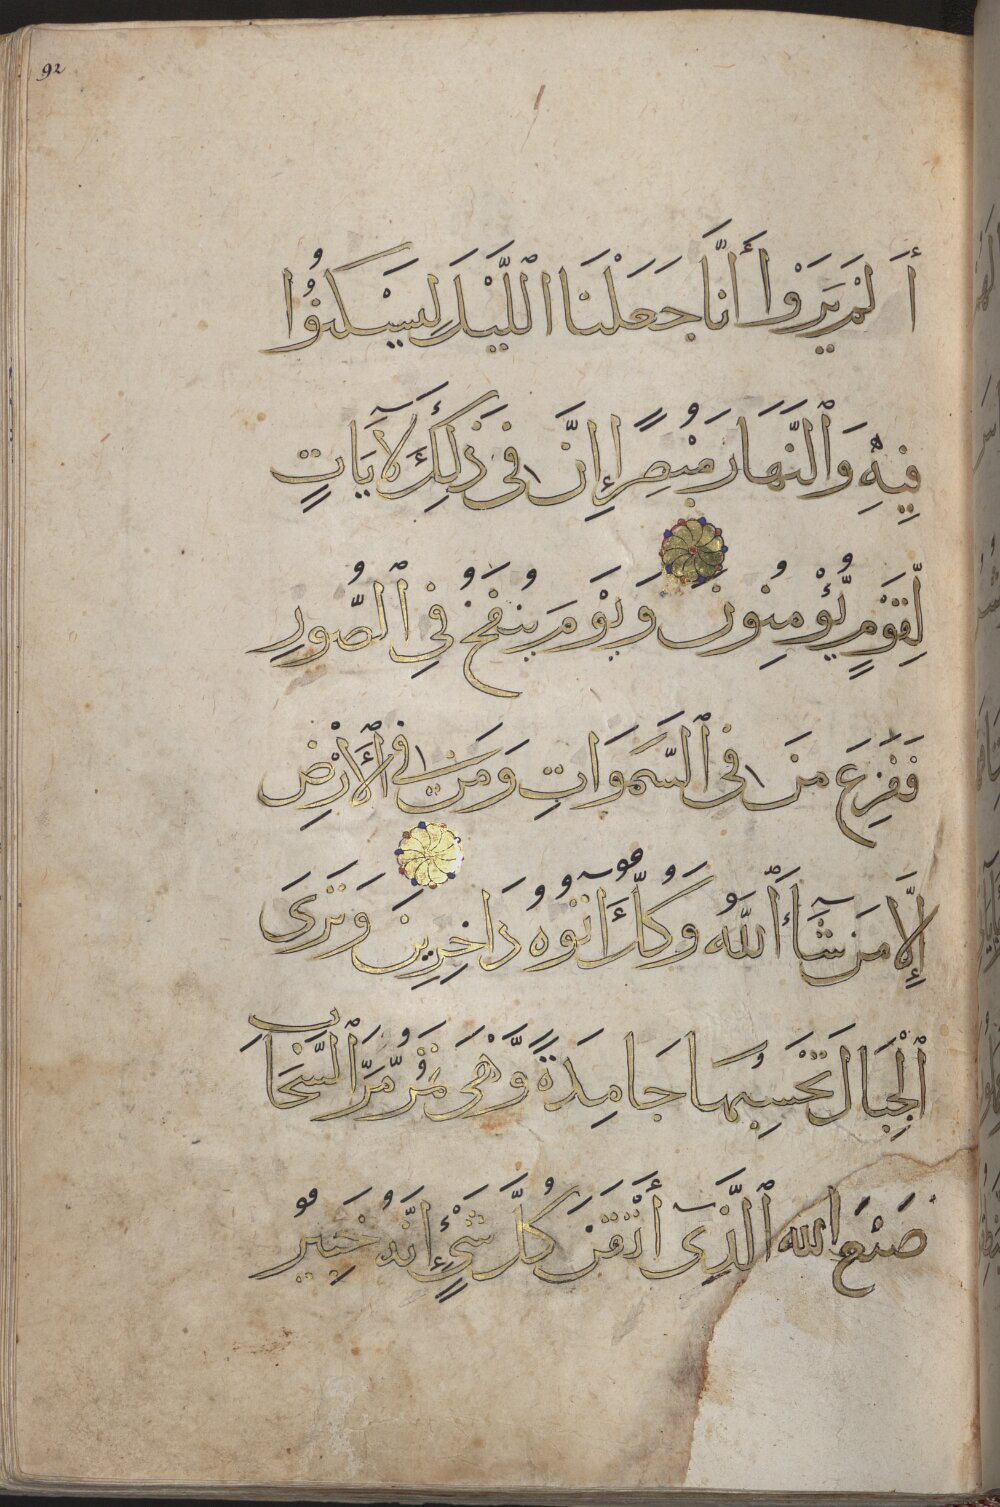 92
أَلَمْ يَرَوْا أَنَّا جَعَلْنَا اللَّيْلَ لِيَسْكُنُوا
فِيهِ وَالنَّهَارَ مُبْصِرًا إِنَّ فِي ذَلِكَ لَآيَاتٍ
لِّقَوْمٍ يُؤْمِنُونَ وَيَوْمَ يُنفَخُ فِي الصُّورِ
فَفَزِعَ مَن فِي السَّمَوَاتِ وَمَن فِي الْأَرْضِ
إِلَّا مَن شَاءَ اللَّهُ وَكُلٌّ ءَاتُوهُ دَاخِرِينَ وَتَرَى
الْجِبَالَ تَحْسِبُهَا جَامِدَةً وَّهْيَ تَمُرُّ مَرَّ السَّحَابِ
صُنْعَ اللَّهِ الَّذِي أَتْقَنَ كُلَّ شَيْءٍ إِنَّهُ خَبِيرٌ